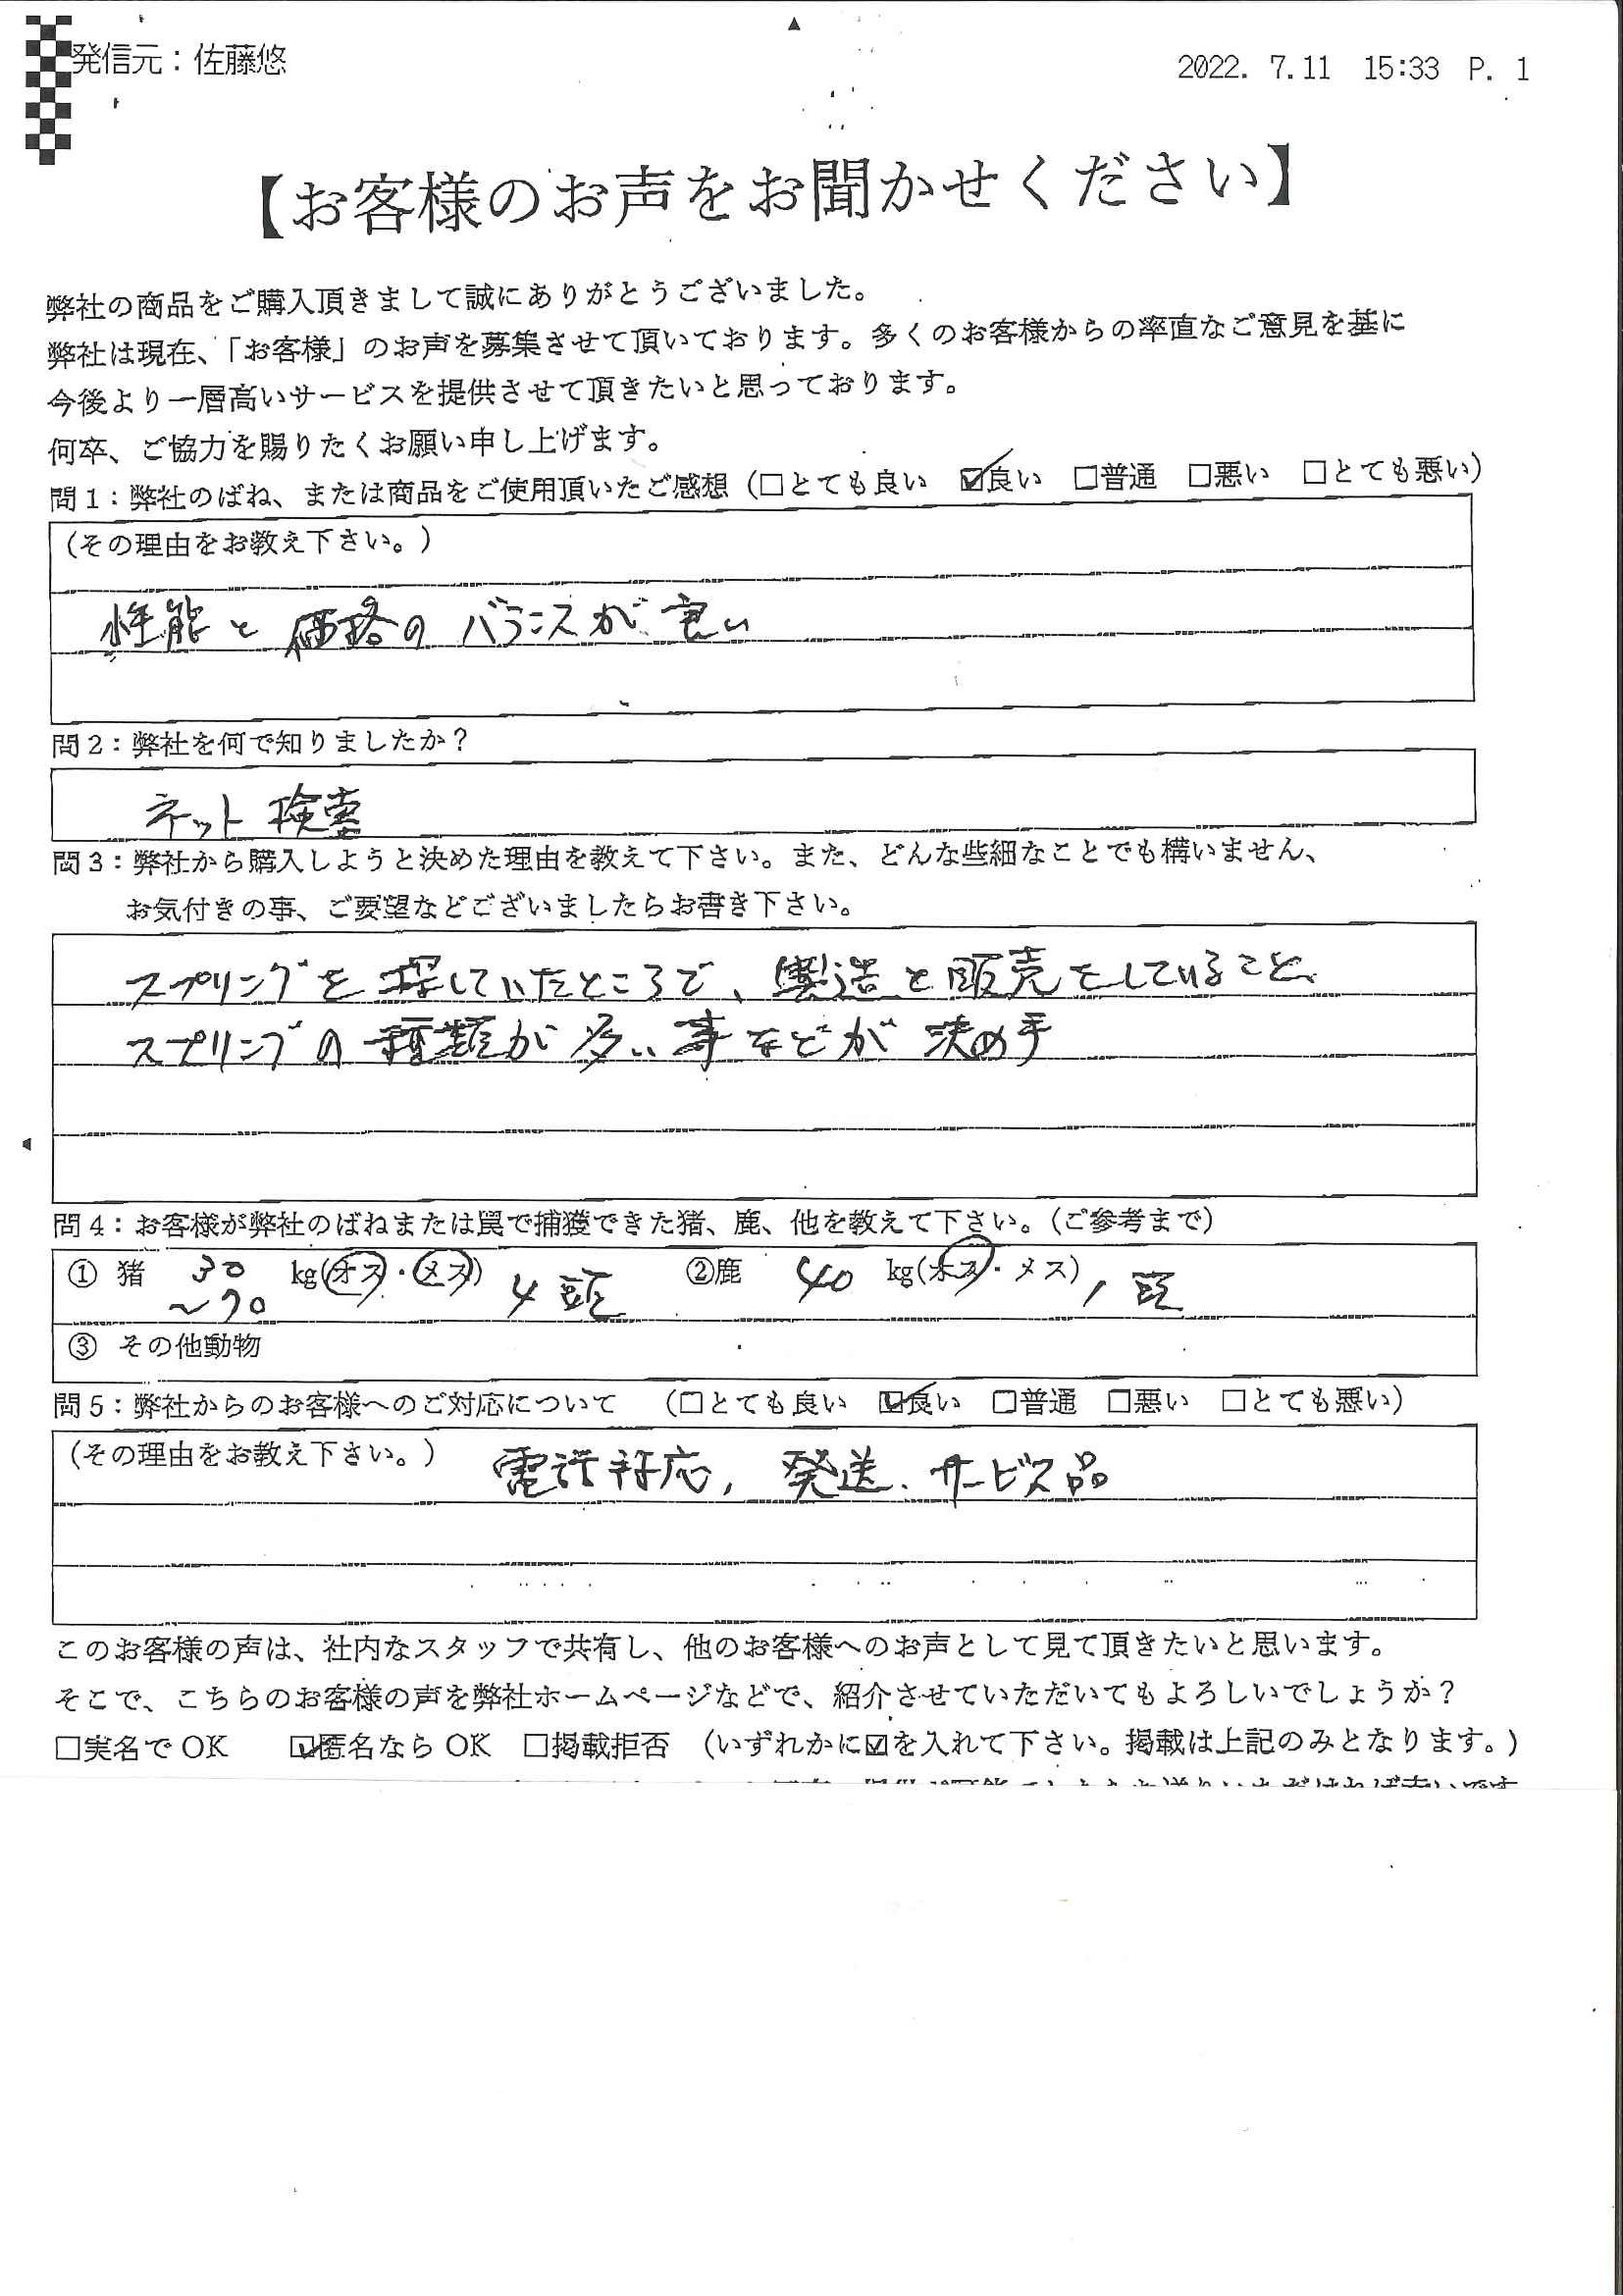 発信元：佐藤悠
2022. 7.11 15:33 P. 1
【お客様のお声をお聞かせください】
弊社の商品をご購入頂きまして誠にありがとうございました。
弊社は現在、「お客様」のお声を募集させて頂いております。多くのお客様からの率直なご意見を基に
今後より一層高いサービスを提供させて頂きたいと思っております。
何卒、ご協力を賜りたくお願い申し上げます。
問1：弊社のばね、または商品をご使用頂いたご感想（□とても良い ☑良い □普通 □悪い □とても悪い）
（その理由をお教え下さい。）
性能と価格のバランスが良い
問2：弊社を何で知りましたか？
ネット検索
問3：弊社から購入しようと決めた理由を教えて下さい。また、どんな些細なことでも構いません、
お気付きの事、ご要望などございましたらお書き下さい。
スプリングを探していたところで、製造と販売をしていること、
スプリングの種類が多い事などが決め手
問4：お客様が弊社のばねまたは罠で捕獲できた猪、鹿、他を教えて下さい。（ご参考まで）
① 猪 30 kg(オス・メス) 4頭 ②鹿 40 kg(オス・メス) 1頭
～70
③ その他動物
問5：弊社からのお客様へのご対応について （□とても良い ☑良い □普通 □悪い □とても悪い）
（その理由をお教え下さい。） 電話対応, 発送、サービス品
このお客様の声は、社内なスタッフで共有し、他のお客様へのお声として見て頂きたいと思います。
そこで、こちらのお客様の声を弊社ホームページなどで、紹介させていただいてもよろしいでしょうか？
□実名でOK ☑匿名ならOK □掲載拒否 （いずれかに☑を入れて下さい。掲載は上記のみとなります。）